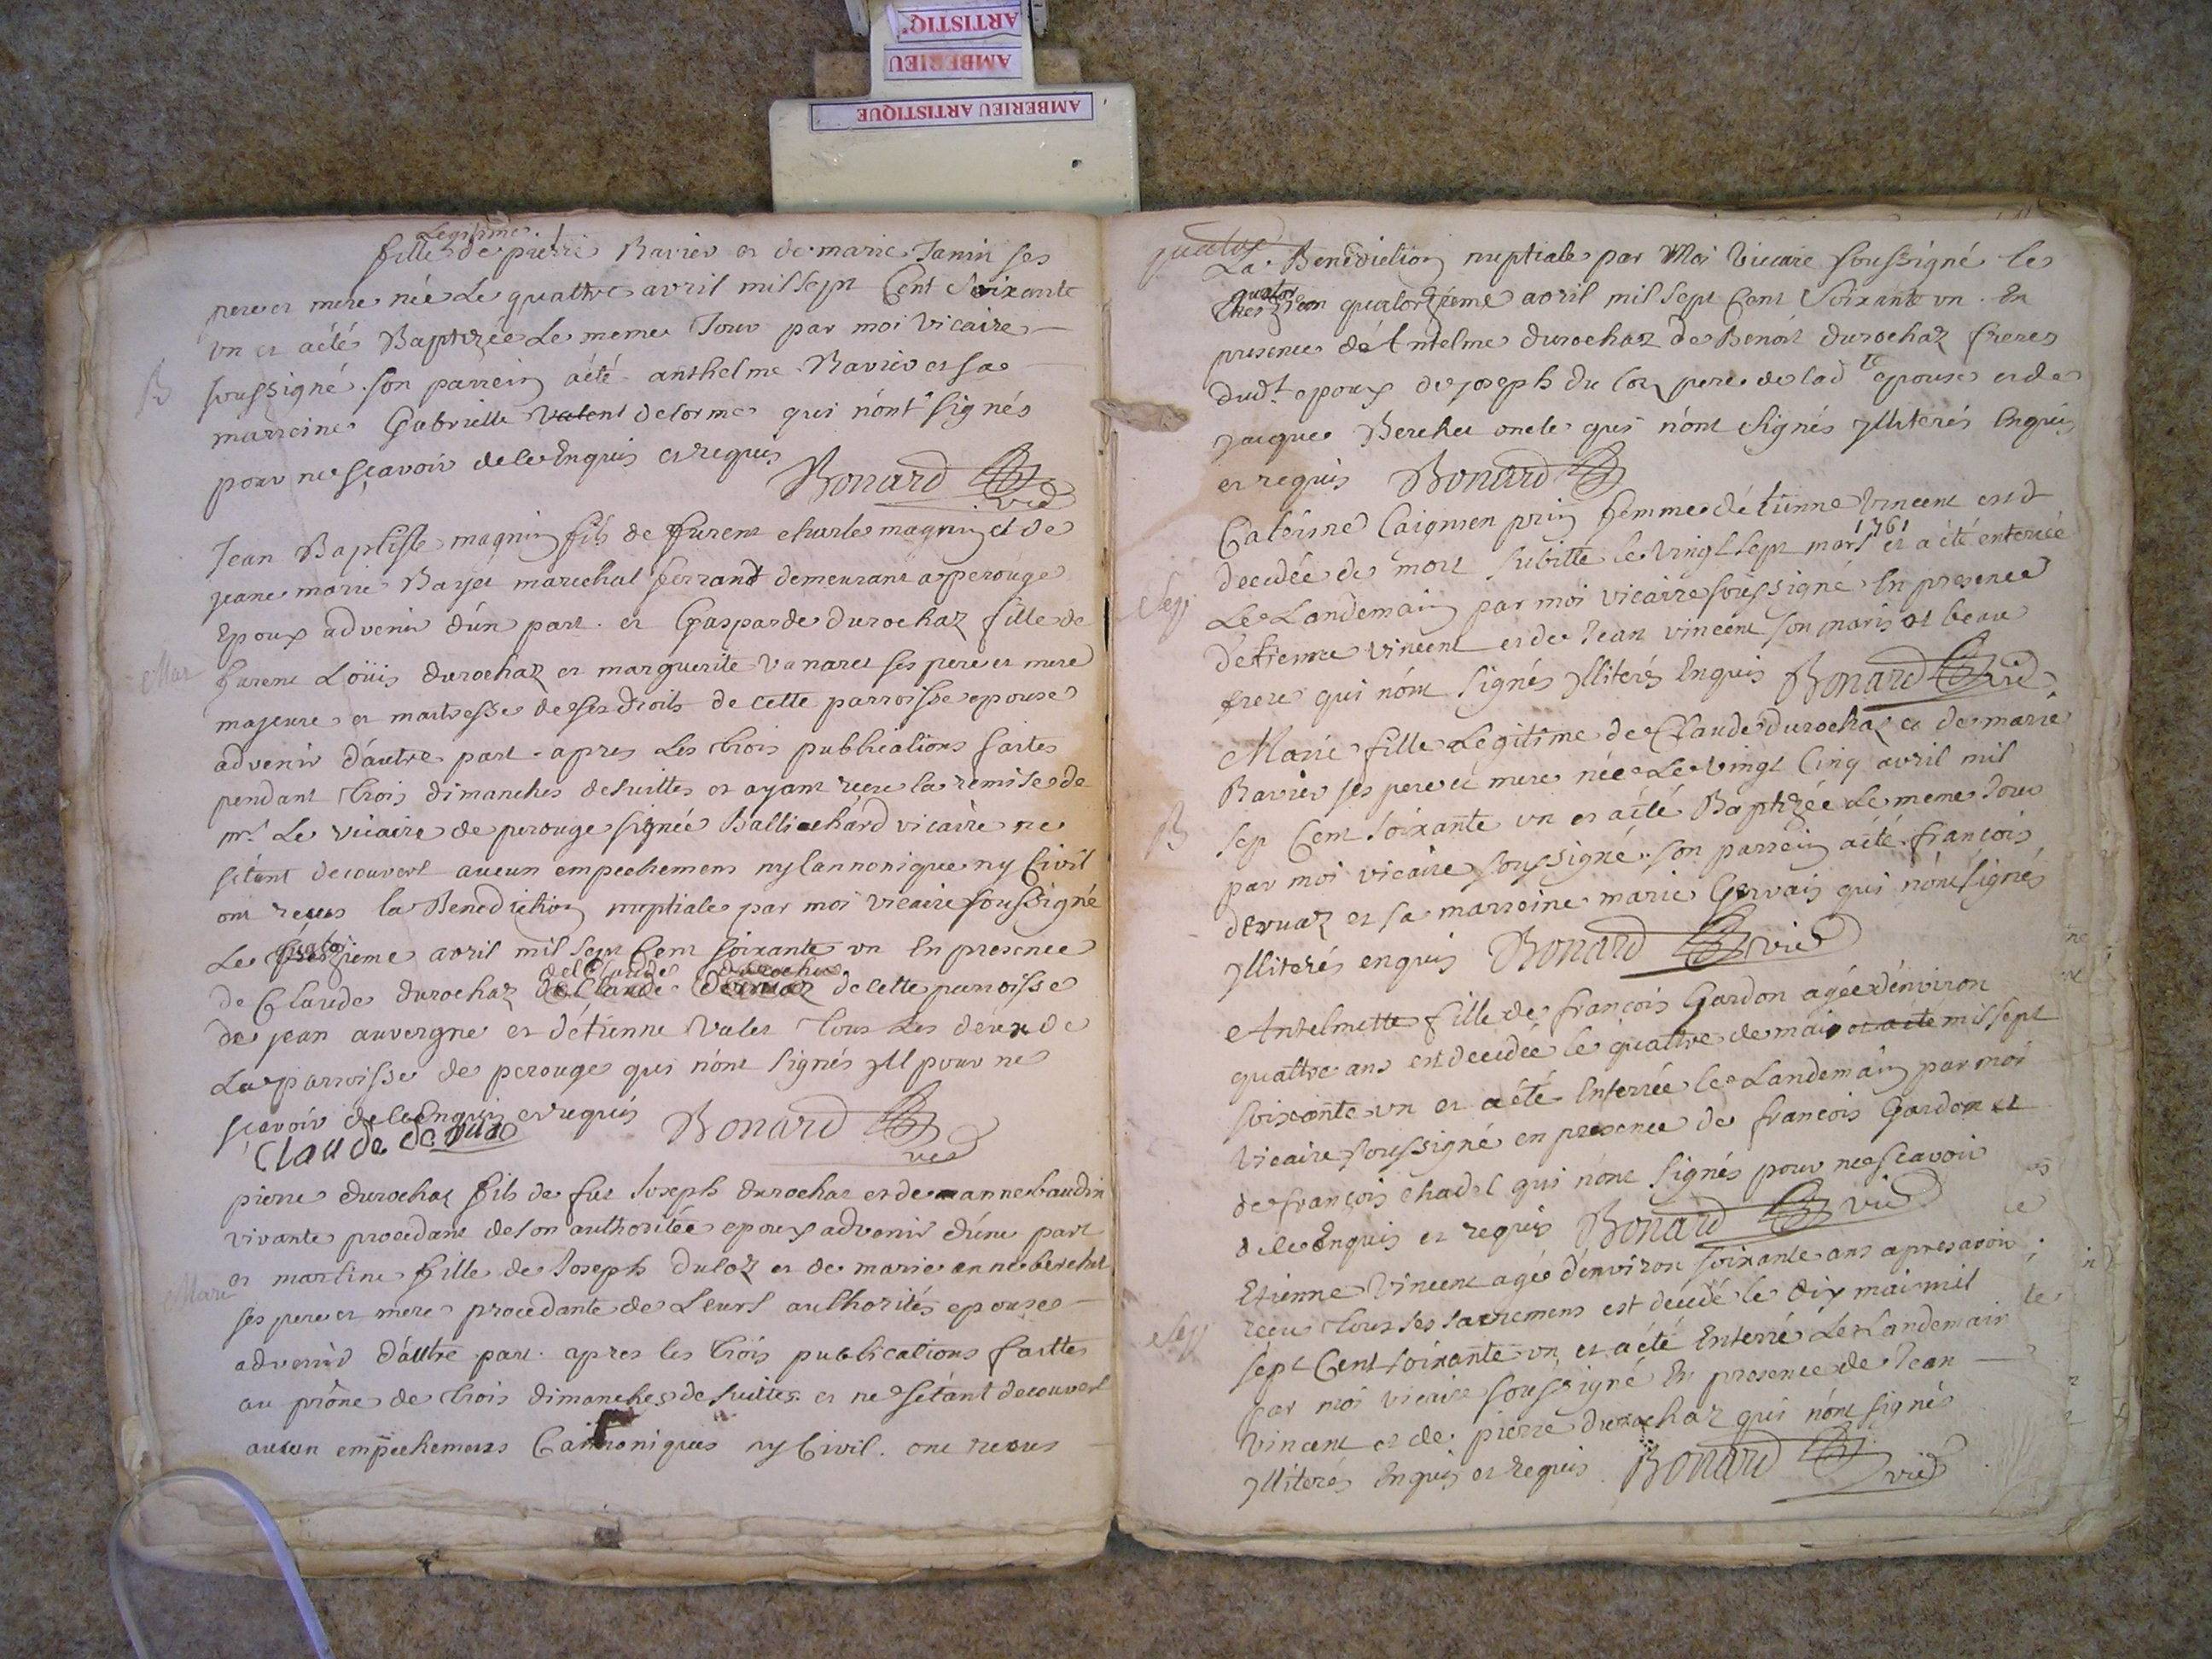 ARTISTIQ
AMBERIEU
AMBERIEU ARTISTIQUE
Legitime
fille de pierre Ravier et de marie Janin ses
pere et mere née Le quattre avril mil sept Cent Soixante
un et aété Baptizée Le meme Jour par moi vicaire
B
soussigné. son parrein aété anthelme Ravier et sa
marreine Gabrielle delorme qui n'ont signés
pour ne sçavoir de le Enquis et requis
Bonard vic
Jean Baptiste magnin fils de furent charle magnin et de
jeane marie Bayet marechal ferrant demeurant a perouge
Epoux advenir d'un part. et Gasparde durochaz fille de
Mar
furent Loüis durochaz et marguerite vanaret ses pere et mere
majeure et maitresse de ses droits de cette parroisse epouse
advenir d'autre part. apres Les trois publications faites
pendant trois dimanches de suittes et ayant receu la remise de
mr. Le vicaire de perouge signée Balliehard vicaire ne
sétant decouvert aucun empechemens ny Cannonique ny Civil
ont receus la Benediction nuptiale par moi vicaire soussigné
quator
Le zieme avril mil sept Cent soixante un En presence
de Claude durochaz
de Claude durochaz de cette parroisse
de jean auvergne et d'étienne valet tous Les deux de
La parroisse de perouge qui n'ont signés yll pour ne
sçavoir de le Enquis et requis
Claude Bonard vic
pierre durochaz fils de fut Joseph durochaz et de anne baudin
vivante procedant de son authoritée epoux advenir d'une part
et martine fille de Joseph duloz et de marie anne berchet
Mari
ses pere et mere procedante de Leurs authorités epouse
advenir d'autre part. apres les trois publications faittes
au prône de trois dimanches de suittes et ne sétant decouvert
aucun empechemens Cannoniques ny Civil. ont receus
quator
La Benediction nuptiale par Moi Vicaire soussigné le
quator
quatorzieme avril mil sept Cent Soixante un. En
presence d'Antelme durochaz de Benoit durochaz freres
dudt epoux de joseph du loz pere de lad te epouse et de
jacque Berchet oncle qui n'ont signés ylliterés Enquis
et requis Bonard
Caterine Caignien prin femme d'étienne vincent est
1761
decedée de mort subitte le vingt sept mars et a été enterrée
Sep
Le Landemain par moi vicaire soussigné En presence
d'étienne vincent et de Jean vincent son maris et beau
frere qui n'ont signés ylliterés Enquis Bonard vic
Marie fille Legitime de Claude durochaz et de marie
Ravier ses pere et mere née Le vingt Cinq avril mil
B
sep Cent soixante un et aété Baptizée Le meme Jour
par moi vicaire soussigné. son parrein aété françois
dervaz et sa marreine marie Gervais qui n'ont signés
ylliterés enquis Bonard vic
Antelmette fille de françois Gardon agée d'environ
quattre ans est decedée le quattre de mai et aété mil sept
soixante un et aété Enterrée le Landemain par moi
vicaire soussigné en presence de francois Gardon et
de françois chadel qui n'ont signés pour ne sçavoir
de le Enquis et requis Bonard vic
Etienne Vincent agée d'environ soixante ans apres avoir
receu tous ses sacremens est decedé le dix mai mil
Sep
sept Cent soixante un et aété Enterré Le Landemain
par moi vicaire soussigné En presence de Jean
vincent et de pierre durochaz qui n'ont signés
ylliterés Enquis et requis. Bonard vic